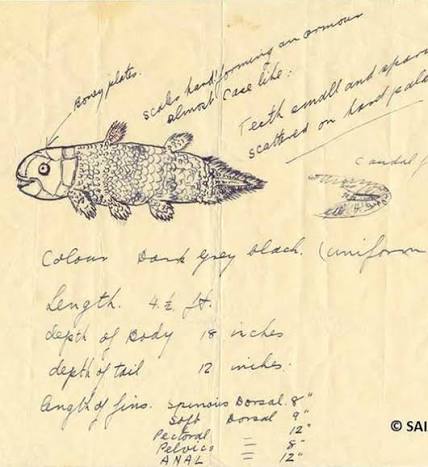 Boney plates.
scales hard forming an armour
almost case like:
Teeth small and
scattered on hard
Caudal
Colour Dark Grey black. (uniform
Length. 4½ ft.
depth of Body 18 inches
depth of tail 12 inches.
length of fins. Spinous Dorsal. 8"
Soft Dorsal 9"
Pectoral 12"
Pelvics = 8"
ANAL = 12"
© SAI